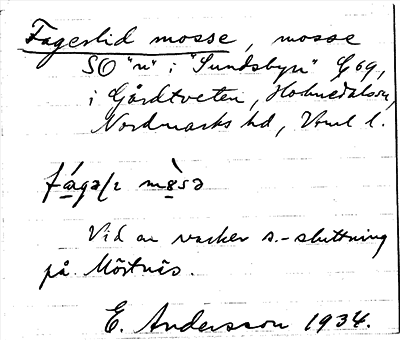 Fagerlid mosse, mosse
SO "n" i "Sundsbyn" G 69,
i Gårdtveten, Holmedalssn,
Nordmarks hd, Vrml l.
Vid en vacker s.-sluttning
på Mörtnäs.
E. Andersson 1934.